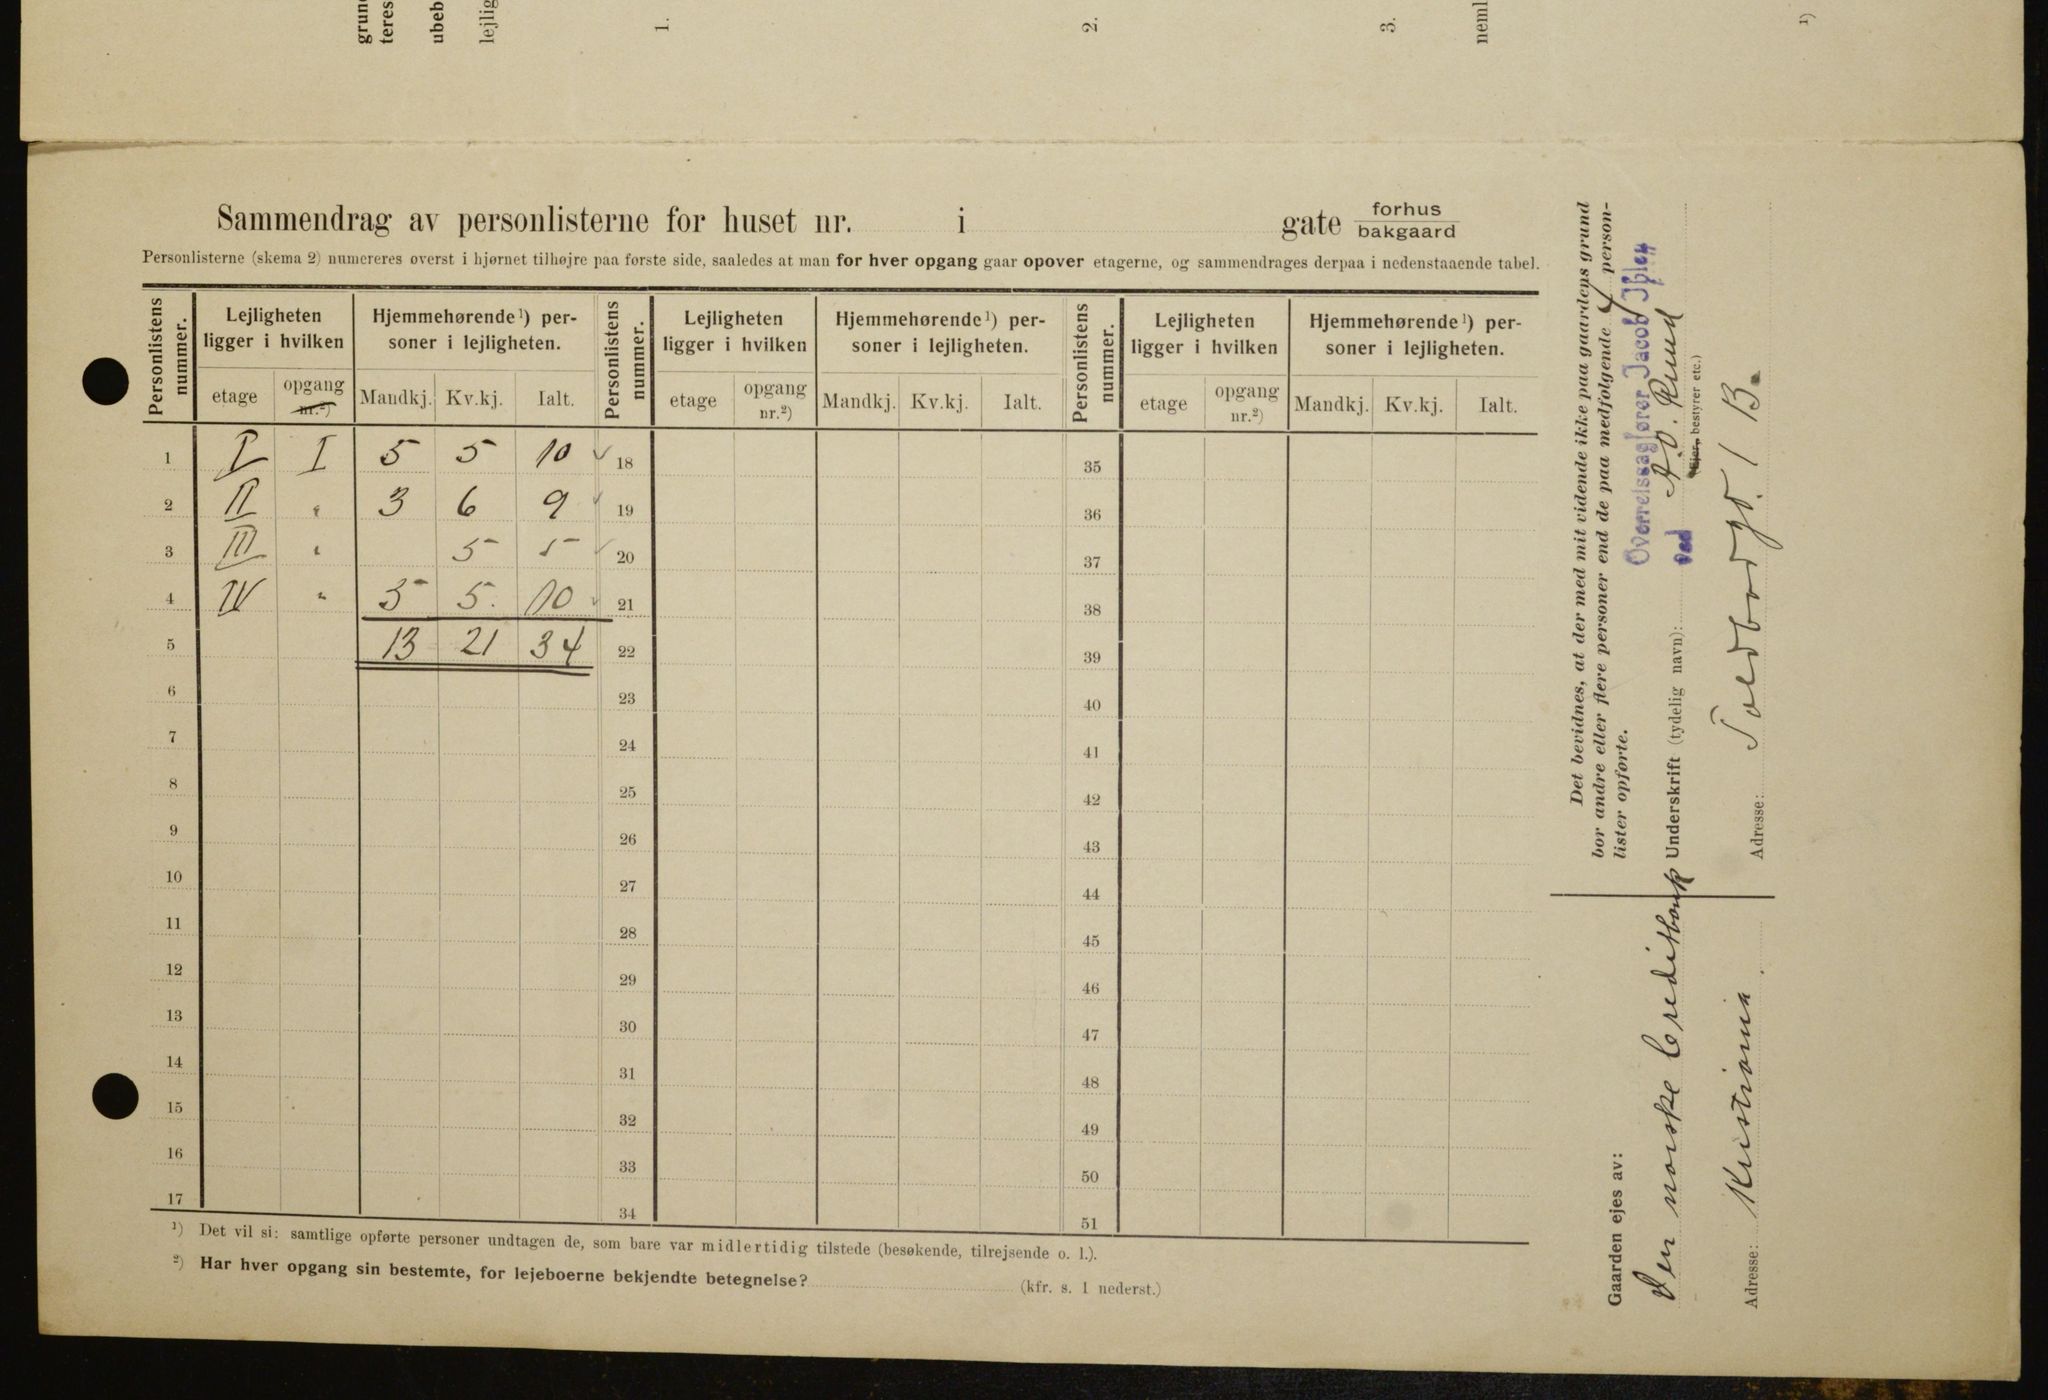 grun
teres
ubeb
lejlig
1.
2.
3.
neml
¹)
Sammendrag av personlisterne for huset nr. i gate forhus
bakgaard
Personlisterne (skema 2) numereres øverst i hjørnet tilhøjre paa første side, saaledes at man for hver opgang gaar opover etagerne, og sammendrages derpaa i nedenstaaende tabel.
Personlistens nummer. Lejligheten ligger i hvilken Hjemmehørende ¹) personer i lejligheten. Personlistens nummer. Lejligheten ligger i hvilken Hjemmehørende ¹) personer i lejligheten. Personlistens nummer. Lejligheten ligger i hvilken Hjemmehørende ¹) personer i lejligheten.
etage opgang nr.²) Mandkj. Kv.kj. Ialt. etage opgang nr.²) Mandkj. Kv.kj. Ialt. etage opgang nr.²) Mandkj. Kv.kj. Ialt.
1 I I 5 5 10 ✓ 18 35
2 II " 3 6 9 ✓ 19 36
3 III " 5 5 ✓ 20 37
4 IV " 5 5. 10 ✓ 21 38
5 13 21 34 22 39
6 23 40
7 24 41
8 25 42
9 26 43
10 27 44
11 28 45
12 29 46
13 30 47
14 31 48
15 32 49
16 33 50
17 34 51
¹) Det vil si: samtlige opførte personer undtagen de, som bare var midlertidig tilstede (besøkende, tilrejsende o. l.).
²) Har hver opgang sin bestemte, for lejeboerne bekjendte betegnelse? (kfr. s. 1 nederst.)
Det bevidnes, at der med mit vidende ikke paa gaardens grund
bor andre eller flere personer end de paa medfølgende 4 person-
lister opførte.
Overretssagfører Jacob Ihlen
ved
Underskrift (tydelig navn): A. O. Ruud
(Ejer, bestyrer etc.)
Adresse: Toldbodgt. 1 B.
Gaarden ejes av:
Den norske Creditbank
Adresse: Kristiania